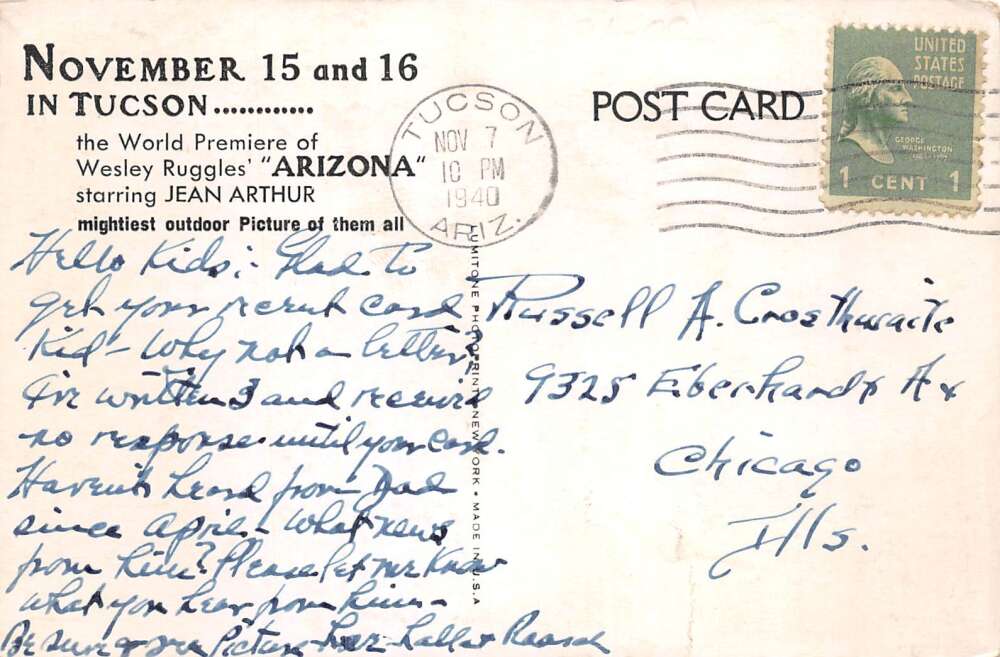 NOVEMBER 15 and 16
IN TUCSON............
the World Premiere of
Wesley Ruggles' "ARIZONA"
starring JEAN ARTHUR
mightiest outdoor Picture of them all
TUCSON
NOV 7
10 PM
1940
ARIZ.
POST CARD
UNITED
STATES
POSTAGE
GEORGE
WASHINGTON
1 CENT 1
Hello Kids: Glad to
get your recent card
Kid - Why not a letter,
I've written 3 and received
no response until your card.
Haven't heard from Dad
since April - What news
from him? Please let me know
what you hear from him -
Be sure & see Picture
LUMITONE PHOTOPRINT NEW YORK • MADE IN U.S.A
Russell A. Crosthwaite
9325 Eberhardt Av
Chicago
Ills.